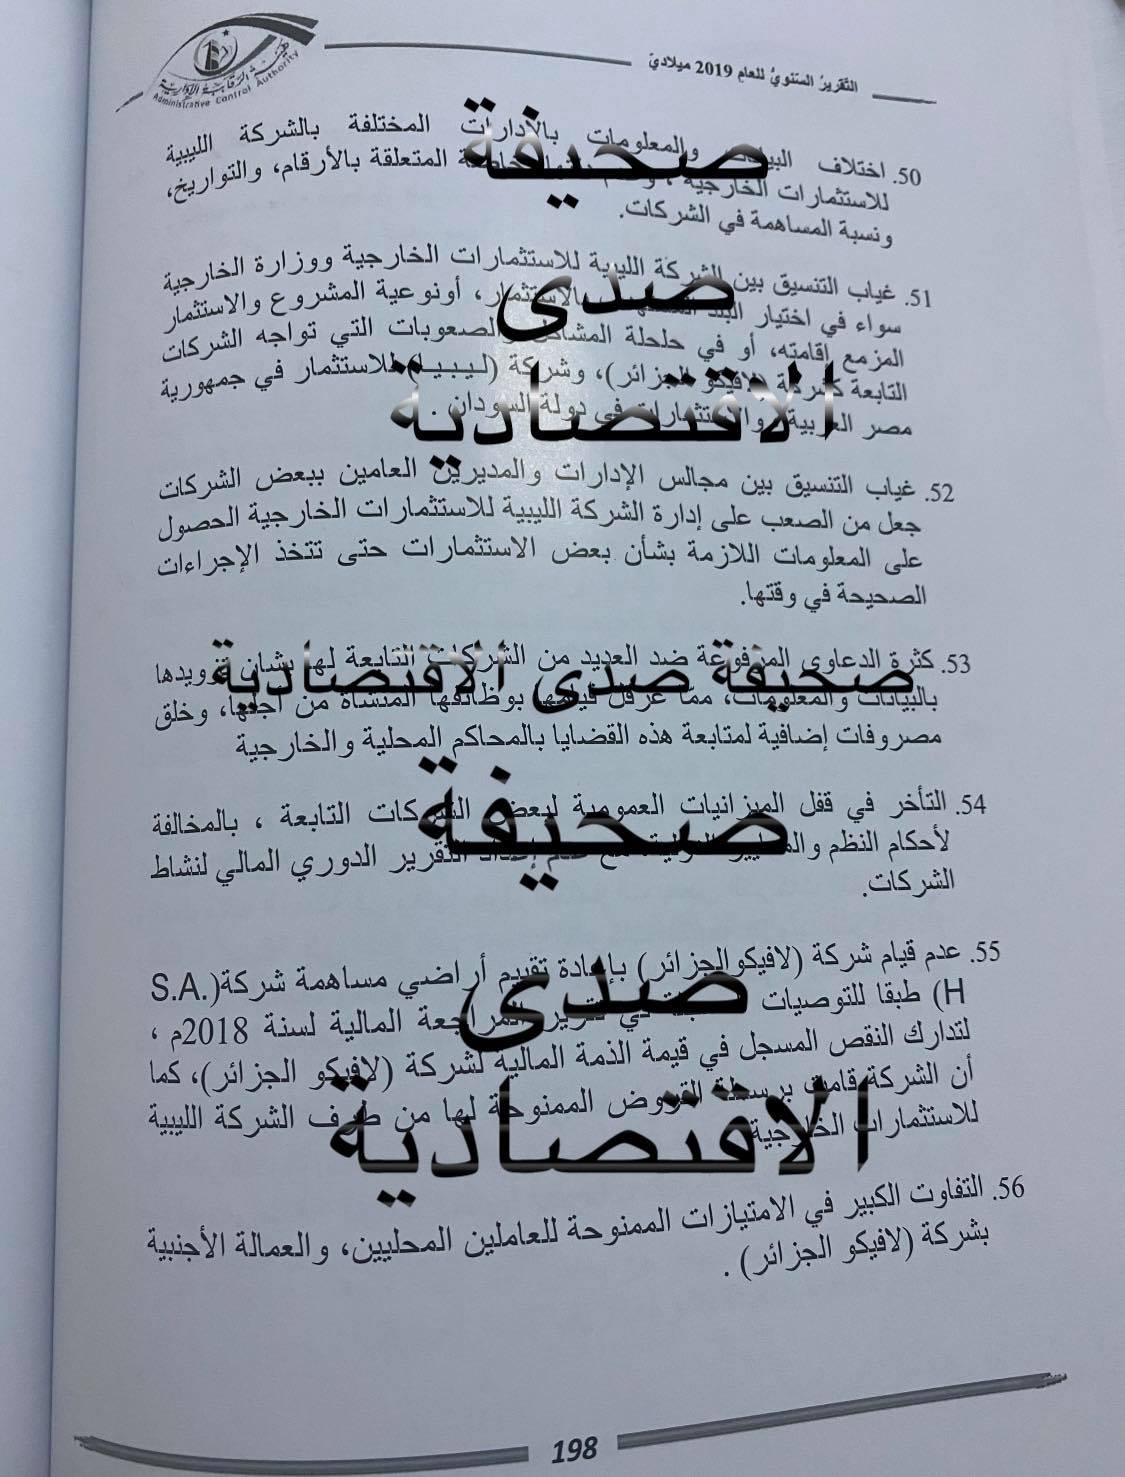 هيئة الرقابة الإدارية
Administrative Control Authority
التقرير السنوي للعام 2019 ميلادي
50. اختلاف البيانات والمعلومات بالإدارات المختلفة بالشركة الليبية
للاستثمارات الخارجية ، المتعلقة بالأرقام، والتواريخ،
ونسبة المساهمة في الشركات.
51. غياب التنسيق بين الشركة الليبية للاستثمارات الخارجية ووزارة الخارجية
سواء في اختيار البلد بالاستثمار، أونوعية المشروع والاستثمار
المزمع إقامته، أو في حلحلة المشاكل والصعوبات التي تواجه الشركات
التابعة كشركة (لافيكو الجزائر)، وشركة (ليبيا) للاستثمار في جمهورية
مصر العربية والاستثمارات في دولة السودان .
52. غياب التنسيق بين مجالس الإدارات والمديرين العامين ببعض الشركات
جعل من الصعب على إدارة الشركة الليبية للاستثمارات الخارجية الحصول
على المعلومات اللازمة بشأن بعض الاستثمارات حتى تتخذ الإجراءات
الصحيحة في وقتها.
53. كثرة الدعاوى المرفوعة ضد العديد من الشركات التابعة لها بشأن تزويدها
بالبيانات والمعلومات، مما عرقل قيامها بوظائفها المنشأة من أجلها، وخلق
مصروفات إضافية لمتابعة هذه القضايا بالمحاكم المحلية والخارجية
54. التأخر في قفل الميزانيات العمومية لبعض الشركات التابعة ، بالمخالفة
لأحكام النظم والمعايير الدولية، مع عدم إعداد التقرير الدوري المالي لنشاط
الشركات.
55. عدم قيام شركة (لافيكوالجزائر) بإعادة تقييم أراضي مساهمة شركة(S.A.
H) طبقا للتوصيات في تقرير المراجعة المالية لسنة 2018م ،
لتدارك النقص المسجل في قيمة الذمة المالية لشركة (لافيكو الجزائر)، كما
أن الشركة قامت برسملة القروض الممنوحة لها من طرف الشركة الليبية
للاستثمارات الخارجية
56. التفاوت الكبير في الامتيازات الممنوحة للعاملين المحليين، والعمالة الأجنبية
بشركة (لافيكو الجزائر) .
198
صحيفة
صدى
الاقتصادية
صحيفة صدى الاقتصادية
صحيفة
صدى
الاقتصادية